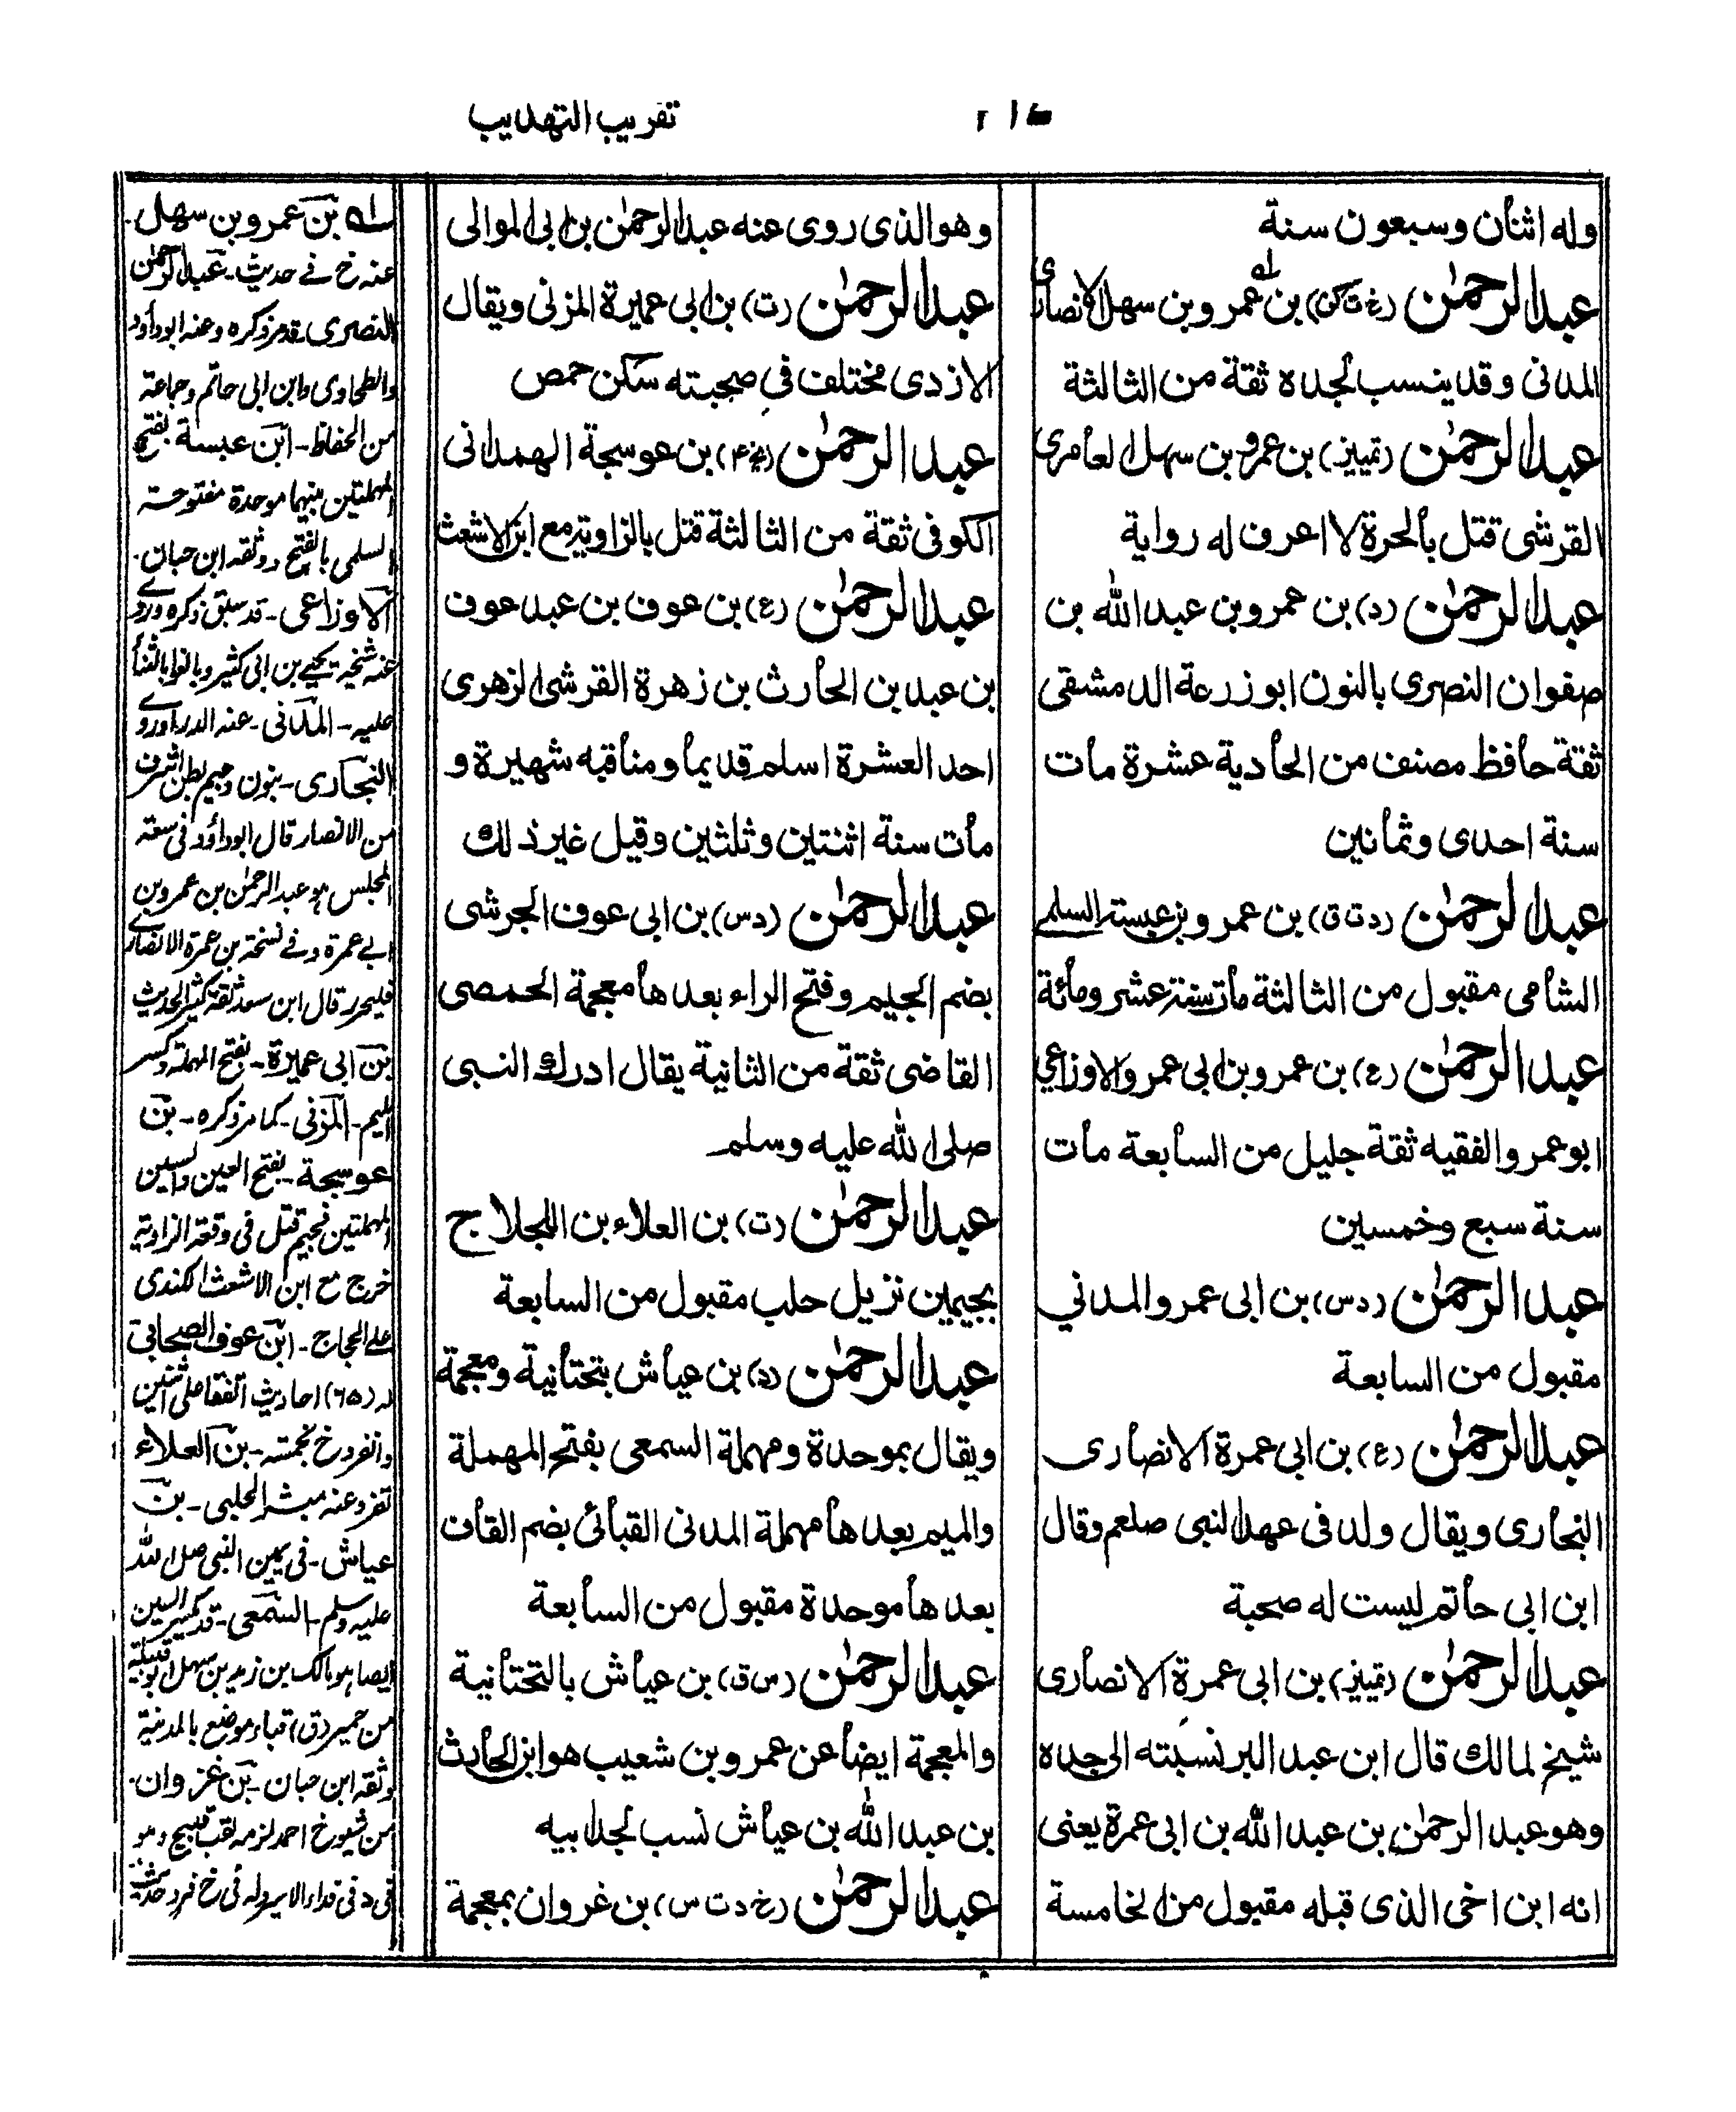 تقريب التهذيب
وله اثنان وسبعون سنة
عبد الرحمٰن (خ ت كن) بن عمرو بن سهل الانصارى
المدنى وقد ينسب لجده ثقة من الثالثة
عبد الرحمٰن (تمييز) بن عمرو بن سهل العامرى
القرشى قتل بالحرة لا اعرف له رواية
عبد الرحمٰن (د) بن عمرو بن عبد الله بن
صفوان النصرى بالنون ابو زرعة الدمشقى
ثقة حافظ مصنف من الحادية عشرة مات
سنة احدى وثمانين
عبد الرحمٰن (د ت ق) بن عمرو بن عبسة السلمى
الشامى مقبول من الثالثة مات سنة عشر ومائة
عبد الرحمٰن (ع) بن عمرو بن ابى عمرو الاوزاعي
ابو عمرو الفقيه ثقة جليل من السابعة مات
سنة سبع وخمسين
عبد الرحمٰن (د س) بن ابى عمرو المدني
مقبول من السابعة
عبد الرحمٰن (ع) بن ابى عمرة الانصارى
النجارى ويقال ولد فى عهد النبى صلعم وقال
ابن ابى حاتم ليست له صحبة
عبد الرحمٰن (تمييز) بن ابى عمرة الانصارى
شيخ لمالك قال ابن عبد البر نسبته الى جده
وهو عبد الرحمٰن بن عبد الله بن ابى عمرة يعنى
انه ابن اخى الذى قبله مقبول من الخامسة
وهو الذى روى عنه عبد الرحمٰن بن ابى الموالى
عبد الرحمٰن (ت) بن ابى عميرة المزنى ويقال
الازدى مختلف فى صحبته سكن حمص
عبد الرحمٰن (بخ ۴) بن عوسجة الهمدانى
الكوفى ثقة من الثالثة قتل بالزاوية مع ابن الاشعث
عبد الرحمٰن (ع) بن عوف بن عبد عوف
بن عبد بن الحارث بن زهرة القرشى الزهرى
احد العشرة اسلم قديما ومناقبه شهيرة و
مات سنة اثنتين وثلثين وقيل غير ذلك
عبد الرحمٰن (د س) بن ابى عوف الجرشى
بضم الجيم وفتح الراء بعدها معجمة الحمصى
القاضى ثقة من الثانية يقال ادرك النبى
صلى الله عليه وسلم
عبد الرحمٰن (ت) بن العلاء بن اللجلاج
بجيمين نزيل حلب مقبول من السابعة
عبد الرحمٰن (د) بن عياش بتحتانية ومعجمة
ويقال بموحدة ومهملة السمعى بفتح المهملة
والميم بعدها مهملة المدنى القبائى بضم القاف
بعدها موحدة مقبول من السابعة
عبد الرحمٰن (س ق) بن عياش بالتحتانية
والمعجمة ايضا عن عمرو بن شعيب هو ابن الحارث
بن عبد الله بن عياش نسب لجد ابيه
عبد الرحمٰن (خ د ت س) بن غزوان بمعجمة
له بن عمرو بن سهل -
عنه خ فے حديث - عبد الرحمٰن
النصرى - قد مر ذكره وعنه ابو داود
والطحاوى وابن ابى حاتم وجماعة
من الحفاظ - ابن عبسة بفتح
المهملتين بينهما موحدة مفتوحة
السلمى بالفتح وثقه ابن حبان -
الاوزاعى - قد سبق ذكره وروى
عنه شيخه يحيى بن ابى كثير وبالغوا بالثناء
عليه - المدنى - عنه الدراوردى
النجارى - بنون وجيم بطن
من الانصار قال ابو داود فى سعة
المجلس هو عبد الرحمٰن بن عمرو بن
ابى عمرة وفے نسخة بن عمرة الانصارى
فليحرر قال ابن سعد ثقة كثير الحديث
بن ابى عميرة - بفتح المهملة وكسر
الميم - المزنى - كما مر ذكره - بن
عوسجة - بفتح العين والسين
المهملتين فجيم قتل فى وقعة الزاوية
خرج مع ابن الاشعث الكندى
على الحجاج - ابن عوف الصحابى
له (۶۵) احاديث اتفقا على اثنين
وانفرد خ بخمسة - بن العلاء
تفرد عنه مبشر الحلبى - بن
عياش - فى يمين النبى صلى الله
عليه وسلم - السمعى - قد تكسر السين
ايضا هو مالك بن زيد بن سهل ابو قبيلة
من حمير (ق) قباء موضع بالمدينة
وثقه ابن حبان - بن غزوان -
من شيوخ احمد لزمه لقب قبيح وهو
فى د فى فداء الاسير وله فى خ فرد حديث